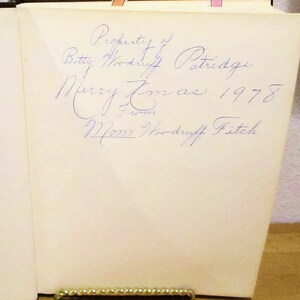 Property of
Betty Woodryff Patridge
Merry Xmas 1978
From
Mom Woodryff Fitch